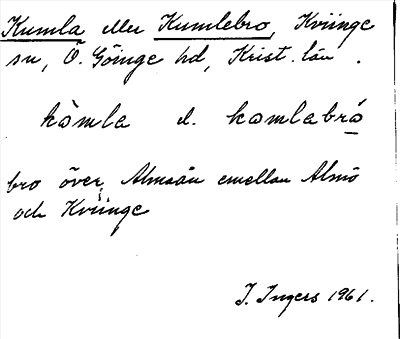 Kumla eller Kumlebro, Kviinge
sn, Ö. Göinge hd, Krist. län.
kòmla el. komlabró
bro över Almaån emellan Almö
och Kviinge
I. Ingers 1961.